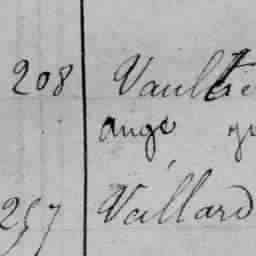 208 Vaultie
ange
257 Vaillard